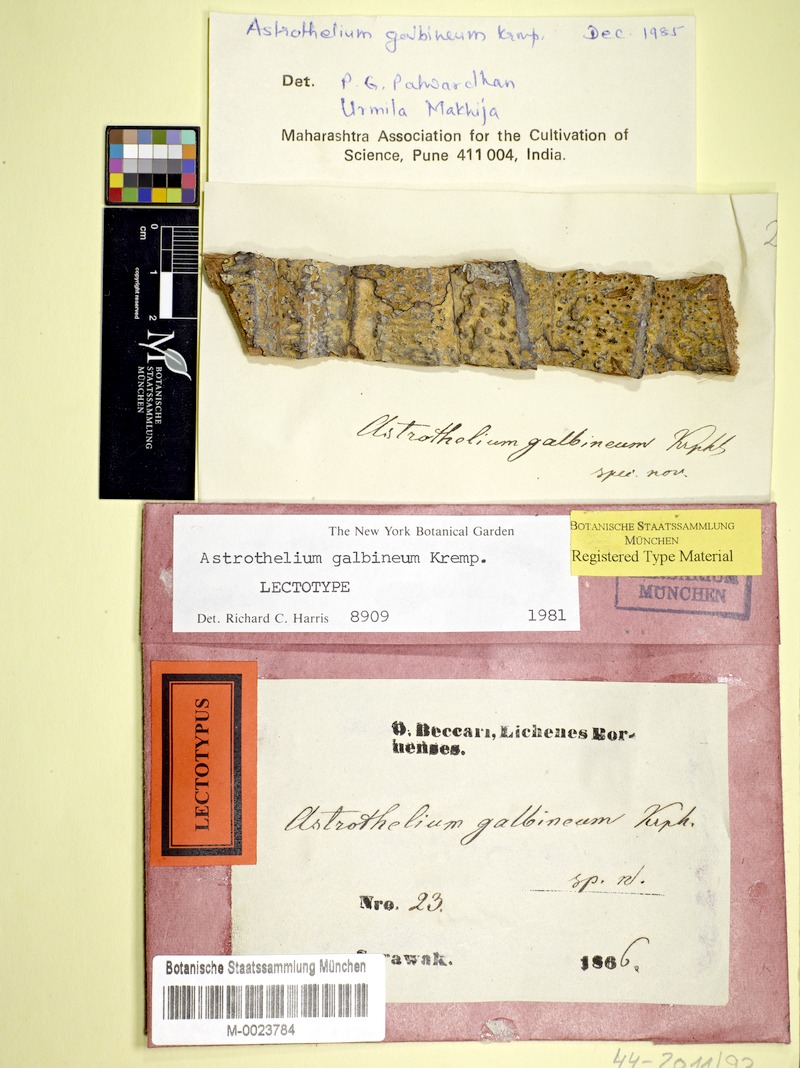 Astrothelium galbineum Krmp. Dec. 1985
Det. P. G. Patwardhan
Urmila Makhija
Maharashtra Association for the Cultivation of
Science, Pune 411 004, India.
2
cm
0
1
2
copyright reserved
BOTANISCHE
STAATSSAMMLUNG
MÜNCHEN
Astrothelium galbineum Krphb
spec. nov.
The New York Botanical Garden
Astrothelium galbineum Kremp.
LECTOTYPE
Det. Richard C. Harris 8909 1981
BOTANISCHE STAATSSAMMLUNG
MÜNCHEN
Registered Type Material
MÜNCHEN
LECTOTYPUS
O. Beccari, Lichenes Bor-
nenses.
Astrothelium galbineum Krph.
sp. n.
Nro. 23.
1866.
Botanische Staatssammlung München
M-0023784
44-2011/92